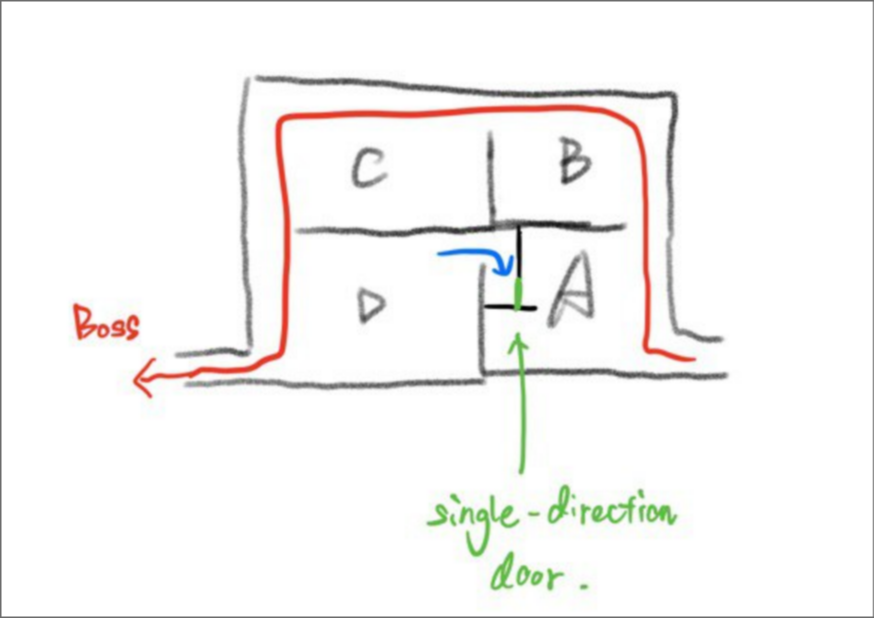 C B
D A
Boss
single-direction
door.